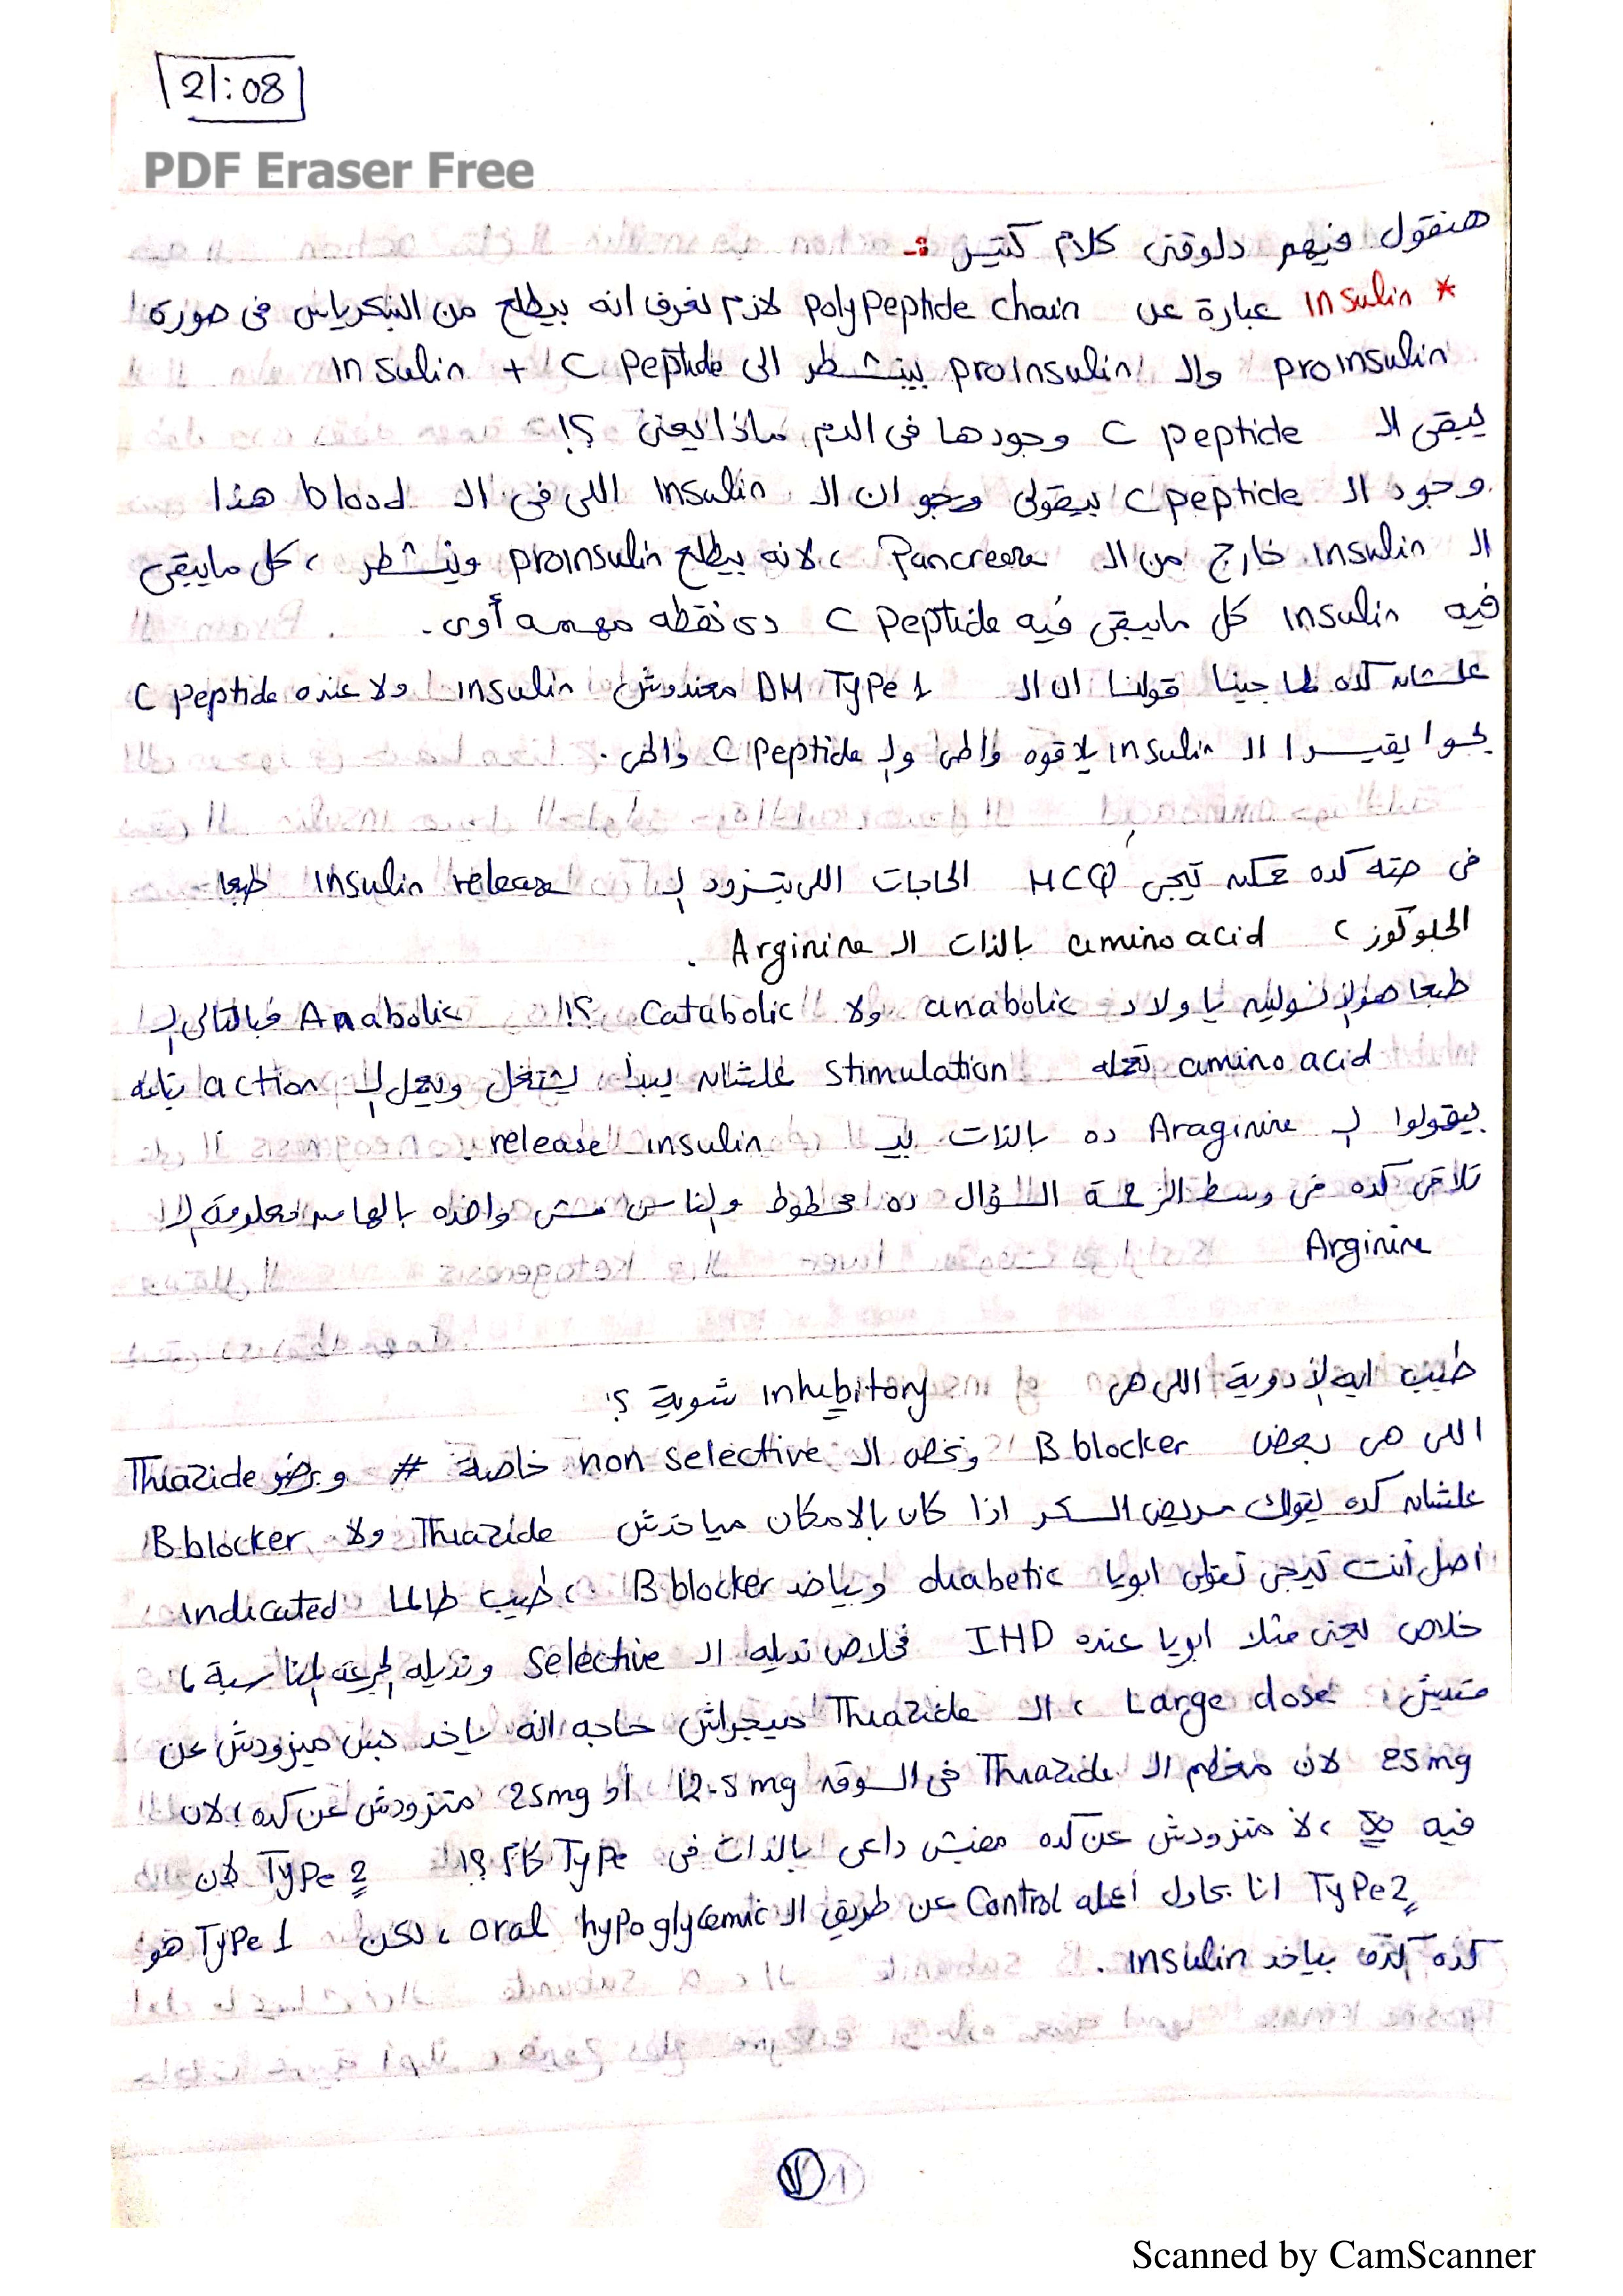 21:08
PDF Eraser Free
هنقول فيهم دلوقتى كلام كتير :-
* Insulin عبارة عن polypeptide chain لازم نعرف انه بيطلع من البنكرياس فى صورة
proinsulin والـ proinsulin بيتشطر الى Insulin + C peptide
يبقى الـ C peptide وجودها فى الدم ماذا يعنى ؟!
وجود الـ C peptide بيقولى ان الـ Insulin اللى فى الـ blood هذا
الـ Insulin خارج من الـ Pancrease ، لانه بيطلع proinsulin ويتشطر ، كل مايبقى
فيه Insulin كل مايبقى فيه C peptide دى نقطه مهمه أوى .
علشان كده لما جينا قولنا ان الـ DM Type 1 معندوش insulin ولا عنده C peptide
يجوا يقيسوا الـ Insulin يلاقوه واطى والـ C peptide واطى .
فى حته كده ممكن تيجى MCQ الحاجات اللى بتزود الـ Insulin release طبعا
الجلوكوز ، amino acid بالذات الـ Arginine .
طبعا هو الإنسولين يا ولاد anabolic ولا Catabolic ؟! Anabolic فبالتالى الـ
amino acid تعمله Stimulation علشان يبدأ يشتغل ويعمل الـ action بتاعه
بيقولوا الـ Araginine ده بالذات بيـ release insulin .
تلاقى كده فى وسط الزحمة السؤال ده محطوط والناس مش واخده بالها من معلومة الـ
Arginine
طيب ايه الأدوية اللى هى inhibitory شوية ؟
اللى هى بعض B blocker ونخص الـ non selective خاصة # وبرضو Thiazide
علشان كده يقولك مريض السكر اذا كان بالامكان مياخدش Thiazide ولا B blocker
أصل أنت تيجى تقولى ابويا diabetic وبياخد B blocker ، طيب طالما indicated
خلاص يعنى مثلا ابويا عنده IHD فخلاص نديله الـ Selective ونديله الجرعة المناسبة ،
متديش Large dose ، الـ Thiazide ميجراش حاجه انه ياخد بس ميزودش عن
25mg لان معظم الـ Thiazide فى السوق 12.5 mg أو 25mg متزودش عن كده ، لان
فيه ، لا متزودش عن كده مفيش داعى بالذات فى Type كام ؟! Type 2 لان
Type 2 انا بحاول أعمله Control عن طريق الـ oral hypoglycemic ، لكن Type 1 هو
كده كده بياخد insulin .
Scanned by CamScanner